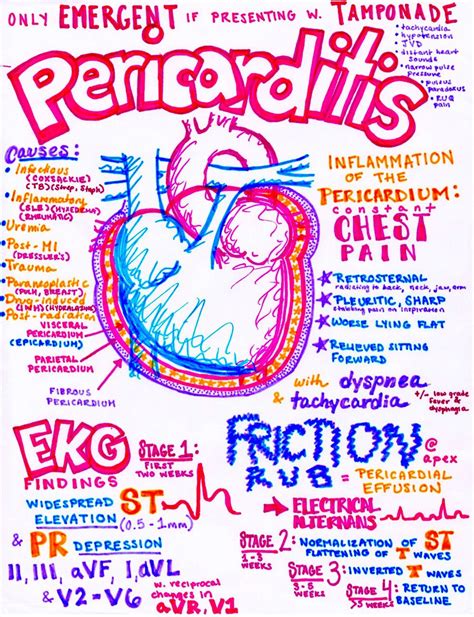 ONLY EMERGENT IF PRESENTING W. TAMPONADE
• tachycardia
• hypotension
• JVD
• distant heart
sounds
• narrow pulse
pressure
• pulsus
paradoxus
• RUQ
pain
Pericarditis
CAUSES:
• Infectious
(COXSACKIE)
(TB)(Strep, Staph)
• Inflammatory
(SLE)
(RHEUMATIC)
• Uremia
• Post-MI
(DRESSLER'S)
• Trauma
• Paraneoplastic
BREAST)
• Drug-induced
(INH)(HYDRALAZINE)
• Post-radiation
VISCERAL
PERICARDIUM
(EPICARDIUM)
PARIETAL
PERICARDIUM
FIBROUS
PERICARDIUM
INFLAMMATION
OF THE
PERICARDIUM:
constant
CHEST
PAIN
★ RETROSTERNAL
radiating to back, neck, jaw, arm
★ PLEURITIC, SHARP
stabbing pain on inspiration
★ WORSE LYING FLAT
★ RELIEVED SITTING
FORWARD
with dyspnea
& tachycardia
+/- low grade
fever &
dysphagia
EKG
FINDINGS
STAGE 1:
FIRST
TWO WEEKS
WIDESPREAD ST
ELEVATION (0.5-1mm)
& PR DEPRESSION
II, III, aVF, I, aVL
& V2-V6
w. reciprocal
changes in
aVR, V1
FRICTION
RUB
@
apex
= PERICARDIAL
EFFUSION
→ ELECTRICAL
ALTERNANS
STAGE 2: NORMALIZATION OF ST
1-3
WEEKS
FLATTENING OF T WAVES
STAGE 3: INVERTED T WAVES
3-5
WEEKS
STAGE 4: RETURN TO
>5 WEEKS
BASELINE